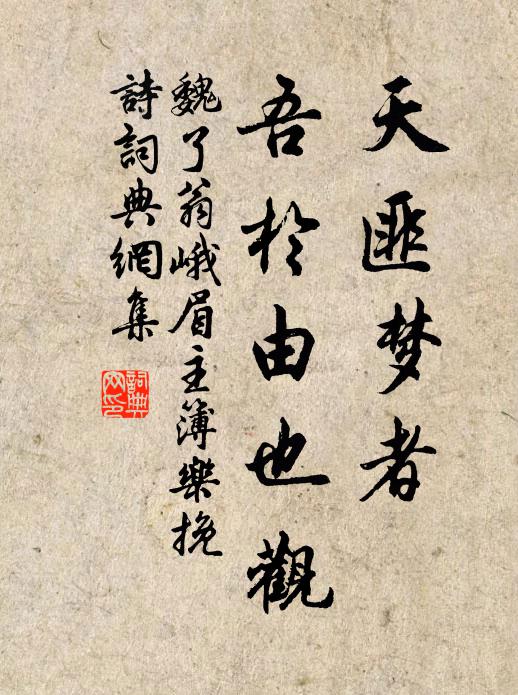 天匪梦者
吾於由也觀
魏了翁峨眉主簿樂挽
詩詞典網集
詞典网印